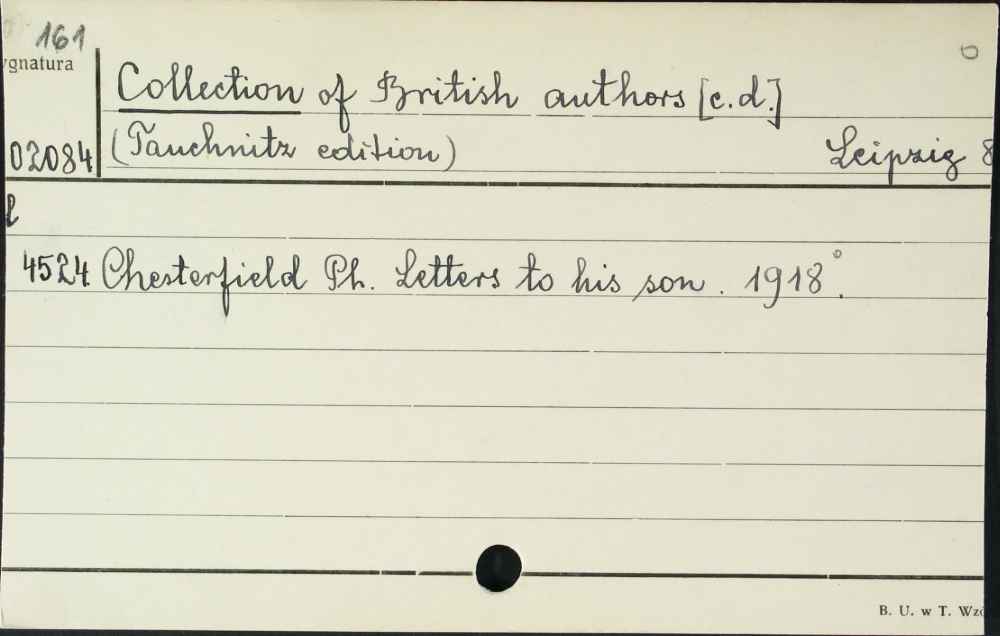 161
ygnatura
Collection of British authors [c.d.]
02084 (Tauchnitz edition) Leipzig 8
l
4524 Chesterfield Ph. Letters to his son. 1918°.
B. U. w T. Wzó